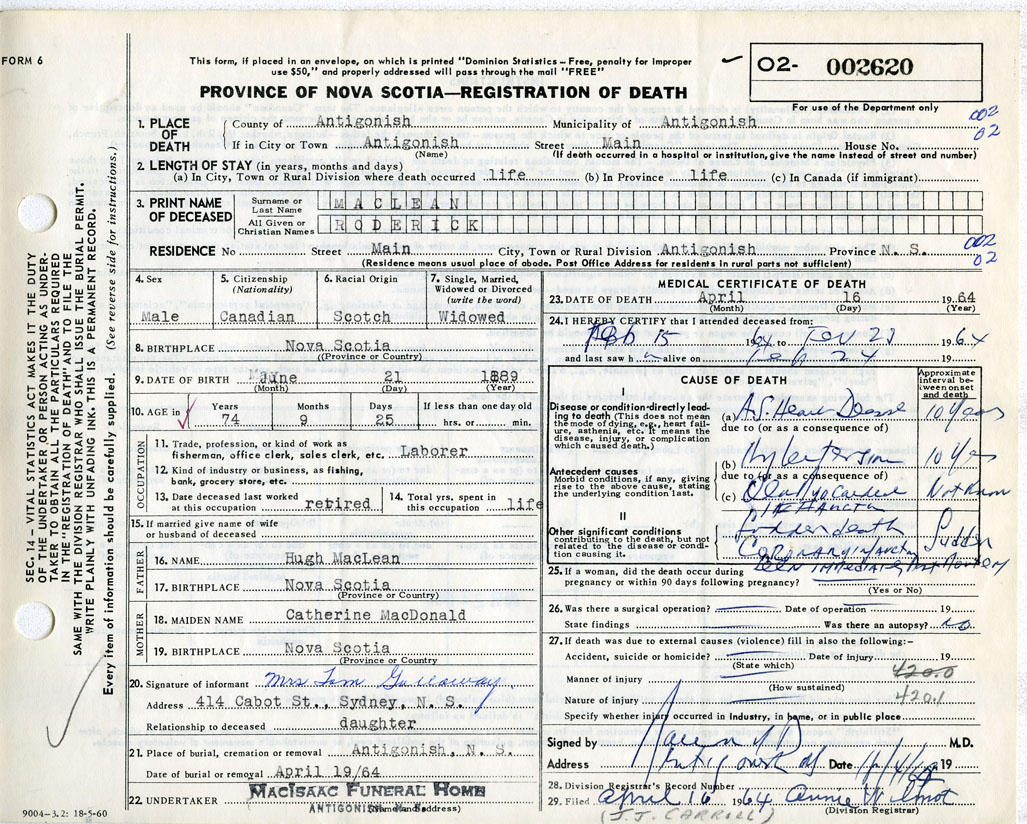 FORM 6
This form, if placed in an envelope, on which is printed "Dominion Statistics – Free, penalty for improper
use $50," and properly addressed will pass through the mail "FREE"
O2- 002620
For use of the Department only
PROVINCE OF NOVA SCOTIA—REGISTRATION OF DEATH
002
02
1. PLACE OF DEATH
County of Antigonish Municipality of Antigonish
If in City or Town Antigonish Street Main House No.
(Name) (If death occurred in a hospital or institution, give the name instead of street and number)
2. LENGTH OF STAY (in years, months and days)
(a) In City, Town or Rural Division where death occurred life (b) In Province life (c) In Canada (if immigrant)
3. PRINT NAME OF DECEASED
Surname or Last Name MACLEAN
All Given or Christian Names RODERICK
RESIDENCE No Street Main City, Town or Rural Division Antigonish Province N. S.
002
02
(Residence means usual place of abode. Post Office Address for residents in rural parts not sufficient)
4. Sex
Male
5. Citizenship (Nationality)
Canadian
6. Racial Origin
Scotch
7. Single, Married, Widowed or Divorced (write the word)
Widowed
8. BIRTHPLACE Nova Scotia
(Province or Country)
9. DATE OF BIRTH June 21 1889
(Month) (Day) (Year)
10. AGE in Years Months Days If less than one day old
74 9 25 hrs. or min.
OCCUPATION
11. Trade, profession, or kind of work as
fisherman, office clerk, sales clerk, etc. Laborer
12. Kind of industry or business, as fishing,
bank, grocery store, etc.
13. Date deceased last worked
at this occupation retired
14. Total yrs. spent in
this occupation life
15. If married give name of wife
or husband of deceased
FATHER
16. NAME Hugh MacLean
17. BIRTHPLACE Nova Scotia
(Province or Country)
MOTHER
18. MAIDEN NAME Catherine MacDonald
19. BIRTHPLACE Nova Scotia
(Province or Country
20. Signature of informant Mrs Tom Gallaway
Address 414 Cabot St., Sydney, N. S.
Relationship to deceased daughter
21. Place of burial, cremation or removal Antigonish, N. S.
Date of burial or removal April 19/64
22. UNDERTAKER MacIsaac Funeral Home
ANTIGONISH
(Name and address)
9004—3.2: 18-5-60
MEDICAL CERTIFICATE OF DEATH
23. DATE OF DEATH April 16 1964
(Month) (Day) (Year)
24. I HEREBY CERTIFY that I attended deceased from:
Feb 15 1964 to Feb 23 1964
and last saw h alive on Feb 24 19
CAUSE OF DEATH
Approximate interval between onset and death
I
Disease or condition directly leading to death (This does not mean the mode of dying, e.g., heart failure, asthenia, etc. It means the disease, injury, or complication which caused death.)
(a) A.S. Heart Disease 10 Years
due to (or as a consequence of)
Antecedent causes
Morbid conditions, if any, giving rise to the above cause, stating the underlying condition last.
(b) Hypertension 10 Yrs
due to (or as a consequence of)
(c) Old Myocardial Infarction Not Known
II
Other significant conditions
contributing to the death, but not related to the disease or condition causing it.
Sudden death
Coronary Infarction Sudden
Seen immediately Post Mortem
25. If a woman, did the death occur during
pregnancy or within 90 days following pregnancy?
(Yes or No)
26. Was there a surgical operation? Date of operation 19
State findings Was there an autopsy? no
27. If death was due to external causes (violence) fill in also the following:–
Accident, suicide or homicide? Date of injury 19
(State which)
Manner of injury 420.0
(How sustained)
Nature of injury 420.1
Specify whether injury occurred in Industry, in home, or in public place
Signed by M.D.
Address Antigonish NS Date 19
28. Division Registrar's Record Number
29. Filed April 16 1964 Annie Wilmot
(Division Registrar)
(J.J. CARROLL)
SEC. 14 – VITAL STATISTICS ACT MAKES IT THE DUTY
OF THE UNDERTAKER OR PERSON ACTING AS UNDER-
TAKER TO OBTAIN ALL THE PARTICULARS REQUIRED
IN THE "REGISTRATION OF DEATH" AND TO FILE THE
SAME WITH THE DIVISION REGISTRAR WHO SHALL ISSUE THE BURIAL PERMIT.
WRITE PLAINLY WITH UNFADING INK. THIS IS A PERMANENT RECORD.
Every item of information should be carefully supplied. (See reverse side for instructions.)